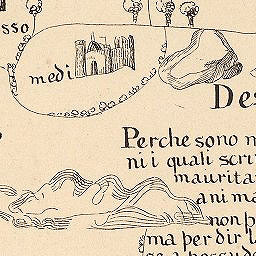 sso
medi
Des
Perche sono m
ni i quali scri
maurita
ani ma
non p
ma per dir l
se a possed